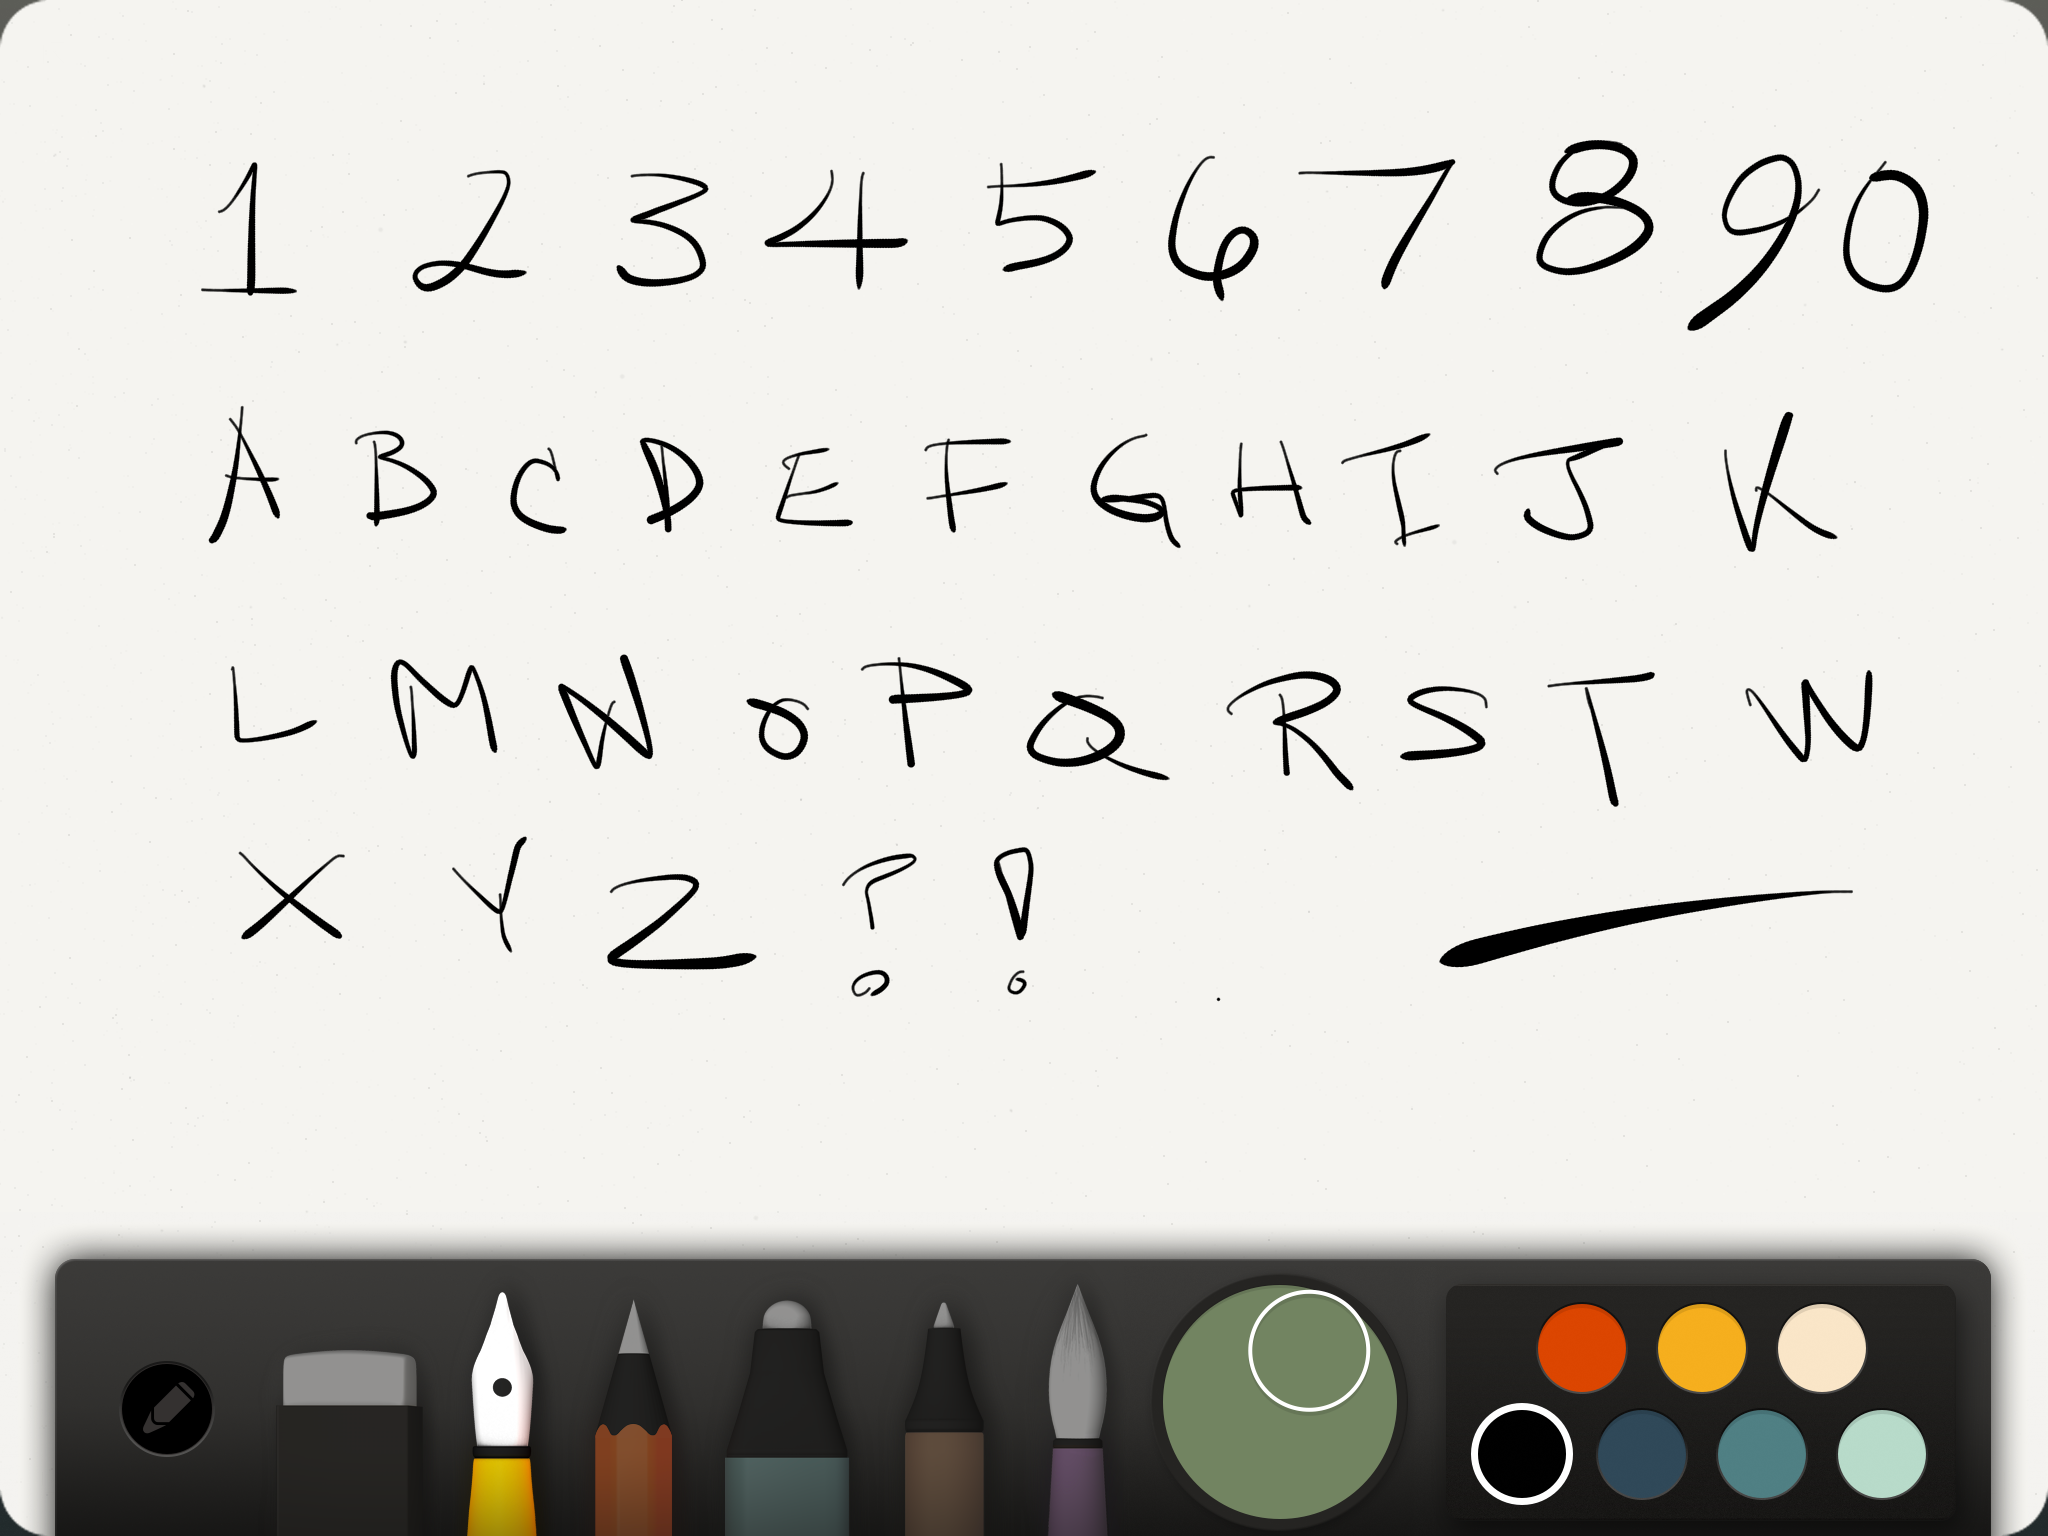 1 2 3 4 5 6 7 8 9 0
A B C D E F G H I J K
L M N O P Q R S T W
X Y Z ? ! .